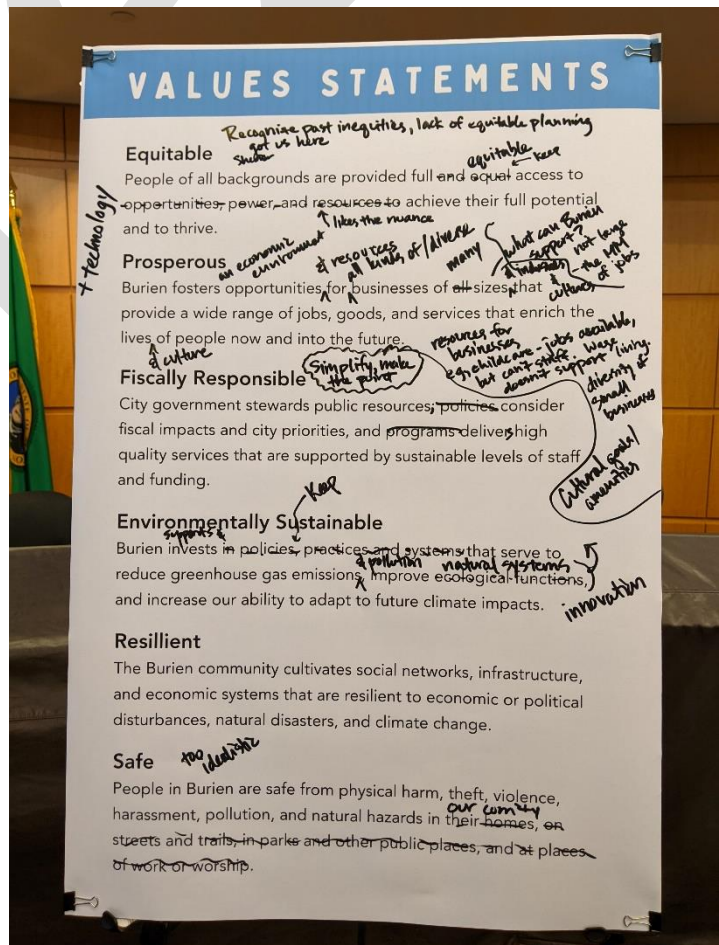 VALUES STATEMENTS
Recognize past inequities, lack of equitable planning
got us here
Equitable
equitable
← Keep
People of all backgrounds are provided full and equal access to
+ technology
opportunities, power, and resources to achieve their full potential
↑ likes the nuance
and to thrive.
what can Burien
support?
Prosperous
an economic
environment
& resources
all kinds of / diverse
many
& industries
not large
- the MPH
of jobs
& cultures
Burien fosters opportunities for businesses of all sizes that
provide a wide range of jobs, goods, and services that enrich the
lives of people now and into the future.
& culture
resources for
businesses
e.g. childcare - jobs available,
but can't staff. Wage
doesn't support living.
diversity of
small
businesses
Cultural goods/
amenities
Simplify, make
the point
Fiscally Responsible
City government stewards public resources, policies consider
fiscal impacts and city priorities, and programs delivers high
quality services that are supported by sustainable levels of staff
and funding.
Keep
Environmentally Sustainable
supports &
Burien invests in policies, practices and systems that serve to
& pollution
natural systems
reduce greenhouse gas emissions, improve ecological functions,
innovation
and increase our ability to adapt to future climate impacts.
Resillient
The Burien community cultivates social networks, infrastructure,
and economic systems that are resilient to economic or political
disturbances, natural disasters, and climate change.
Safe
too
idealistic
People in Burien are safe from physical harm, theft, violence,
our comity
harassment, pollution, and natural hazards in their homes, on
streets and trails, in parks and other public places, and at places
of work or worship.